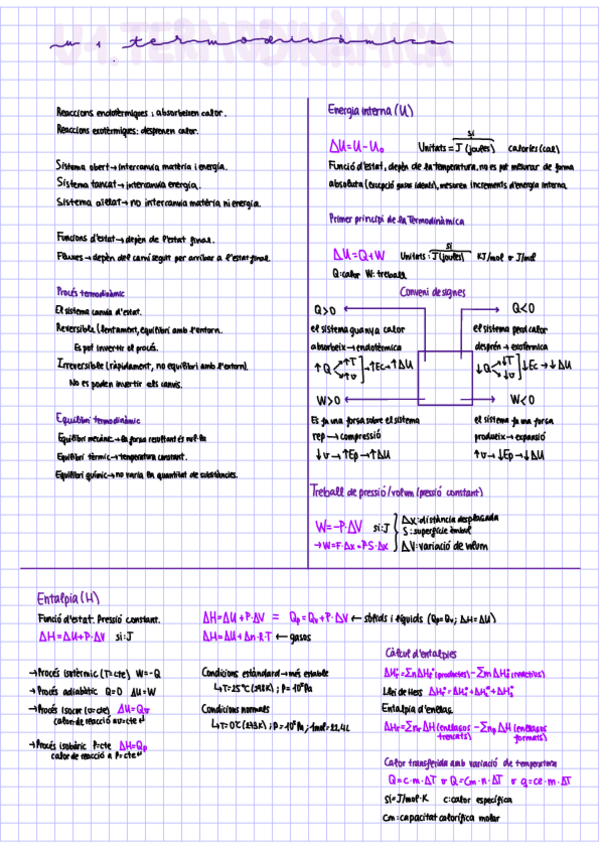 U1. TERMODINÀMICA
u 1. termodinàmica
Reaccions endotèrmiques: absorbeixen calor.
Reaccions exotèrmiques: desprenen calor.
Sistema obert → intercanvia matèria i energia.
Sistema tancat → intercanvia energia.
Sistema aïllat → no intercanvia matèria ni energia.
Funcions d'estat → depèn de l'estat final.
Fluxes → depèn del camí seguit per arribar a l'estat final.
Procés termodinàmic
El sistema canvia d'estat.
Reversible (lentament, equilibri amb l'entorn.
Es pot invertir el procés.
Irreversible (ràpidament, no equilibri amb l'entorn).
No es poden invertir els canvis.
Equilibri termodinàmic
Equilibri mecànic → la força resultant és nul·la
Equilibri tèrmic → temperatura constant.
Equilibri químic → no varia la quantitat de substàncies.
Energia interna (U)
SI
ΔU = U - U₀ Unitats = J (joules) calories (cal)
Funció d'estat, depèn de la temperatura, no es pot mesurar de forma
absoluta (excepció gasos ideals), mesuren increments d'energia interna.
Primer principi de la Termodinàmica
SI
ΔU = Q + W Unitats: J (joules) KJ/mol o J/mol
Q: calor W: treball
Conveni de signes
Q>0 Q<0
el sistema guanya calor el sistema perd calor
absorbeix → endotèrmica desprén → exotèrmica
↑Q ↑T ↑v → ↑Ec → ↑ΔU ↓Q ↓T ↓v ↓Ec → ↓ΔU
W>0 W<0
Es fa una força sobre el sistema el sistema fa una força
rep → compressió produeix → expansió
↓v → ↑Ep → ↑ΔU ↑v → ↓Ep → ↓ΔU
Treball de pressió/volum (pressió constant)
W = -P·ΔV si: J Δx: distància desplaçada
S: superfície èmbol
→ W = F·Δx = P·S·Δx ΔV: variació de volum
Entalpia (H)
Funció d'estat. Pressió constant.
ΔH = ΔU + P·ΔV si: J
ΔH = ΔU + P·ΔV = Qp = Qv + P·ΔV ← sòlids i líquids (Qp = Qv; ΔH = ΔU)
ΔH = ΔU + Δn·R·T ← gasos
→ Procés isotèrmic (T=cte) W = -Q
→ Procés adiabàtic Q=0 ΔU = W
→ Procés isocor (v=cte) ΔU = Qv
calor de reacció a v=cte
→ Procés isobàric P=cte ΔH = Qp
calor de reacció a P=cte
Condicions estàndard → més estable
↳ T=25°C (298K); P=10⁵Pa
Condicions normals
↳ T=0°C (273K); P=10⁵Pa; 1mol=22,4L
Càlcul d'entalpies
ΔHr° = ΣnΔHf° (productes) - ΣmΔHf° (reactius)
Llei de Hess
Entalpia d'enllaç
ΔHr = Σnr ΔH (enllaços trencats) - Σnp ΔH (enllaços formats)
Calor transferida amb variació de temperatura
Q = c·m·ΔT o Q = Cm·n·ΔT o q = ce·m·ΔT
SI = J/mol·K c: calor específica
Cm: capacitat calorífica molar